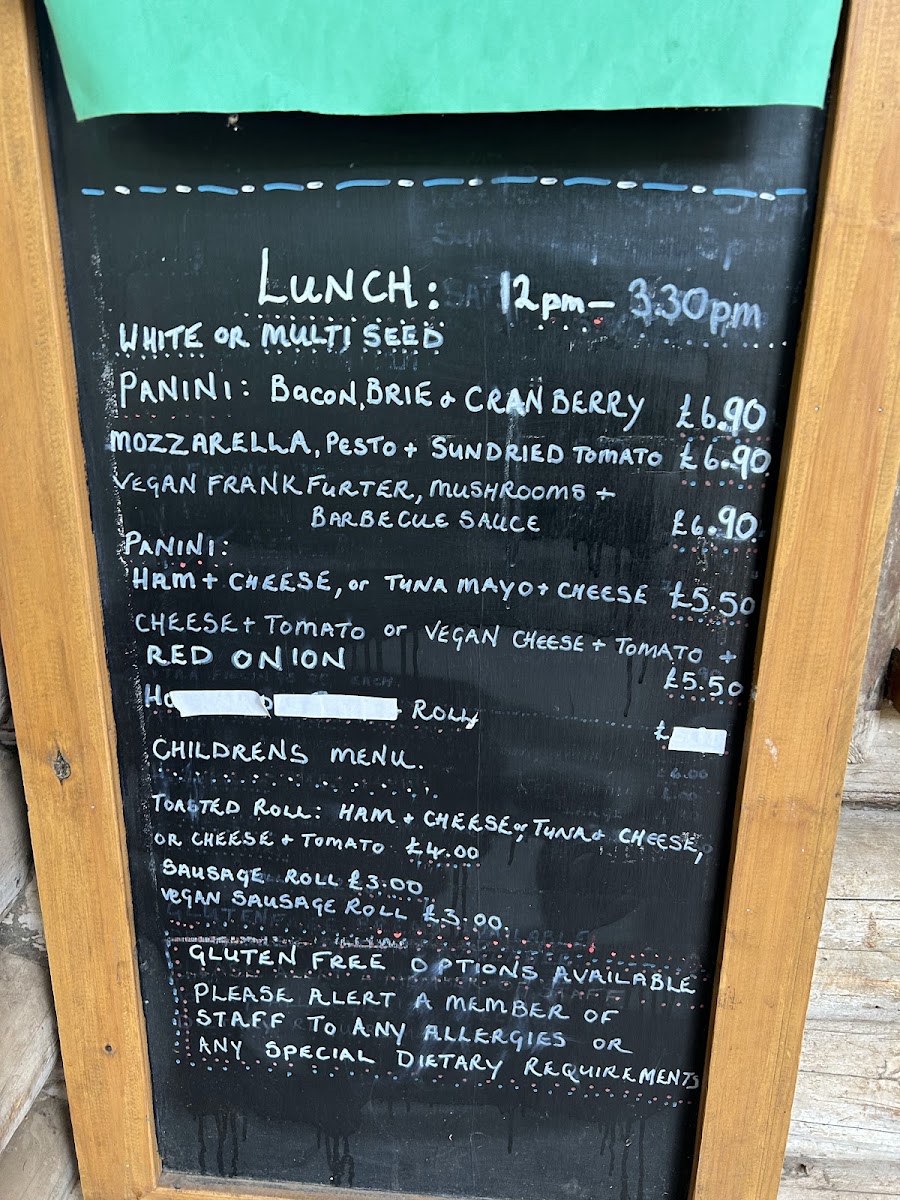 LUNCH: 12pm – 3.30pm
WHITE OR MULTI SEED
PANINI: BACON, BRIE + CRANBERRY £6.90
MOZZARELLA, PESTO + SUNDRIED TOMATO £6.90
VEGAN FRANKFURTER, MUSHROOMS +
BARBECUE SAUCE £6.90
PANINI:
HAM + CHEESE, or TUNA MAYO + CHEESE £5.50
CHEESE + TOMATO or VEGAN CHEESE + TOMATO +
RED ONION
£5.50
ROLL £
CHILDRENS MENU.
TOASTED ROLL: HAM + CHEESE or TUNA + CHEESE,
OR CHEESE + TOMATO £4.00
SAUSAGE ROLL £3.00
VEGAN SAUSAGE ROLL £3.00
GLUTEN FREE OPTIONS AVAILABLE
PLEASE ALERT A MEMBER OF
STAFF TO ANY ALLERGIES OR
ANY SPECIAL DIETARY REQUIREMENTS